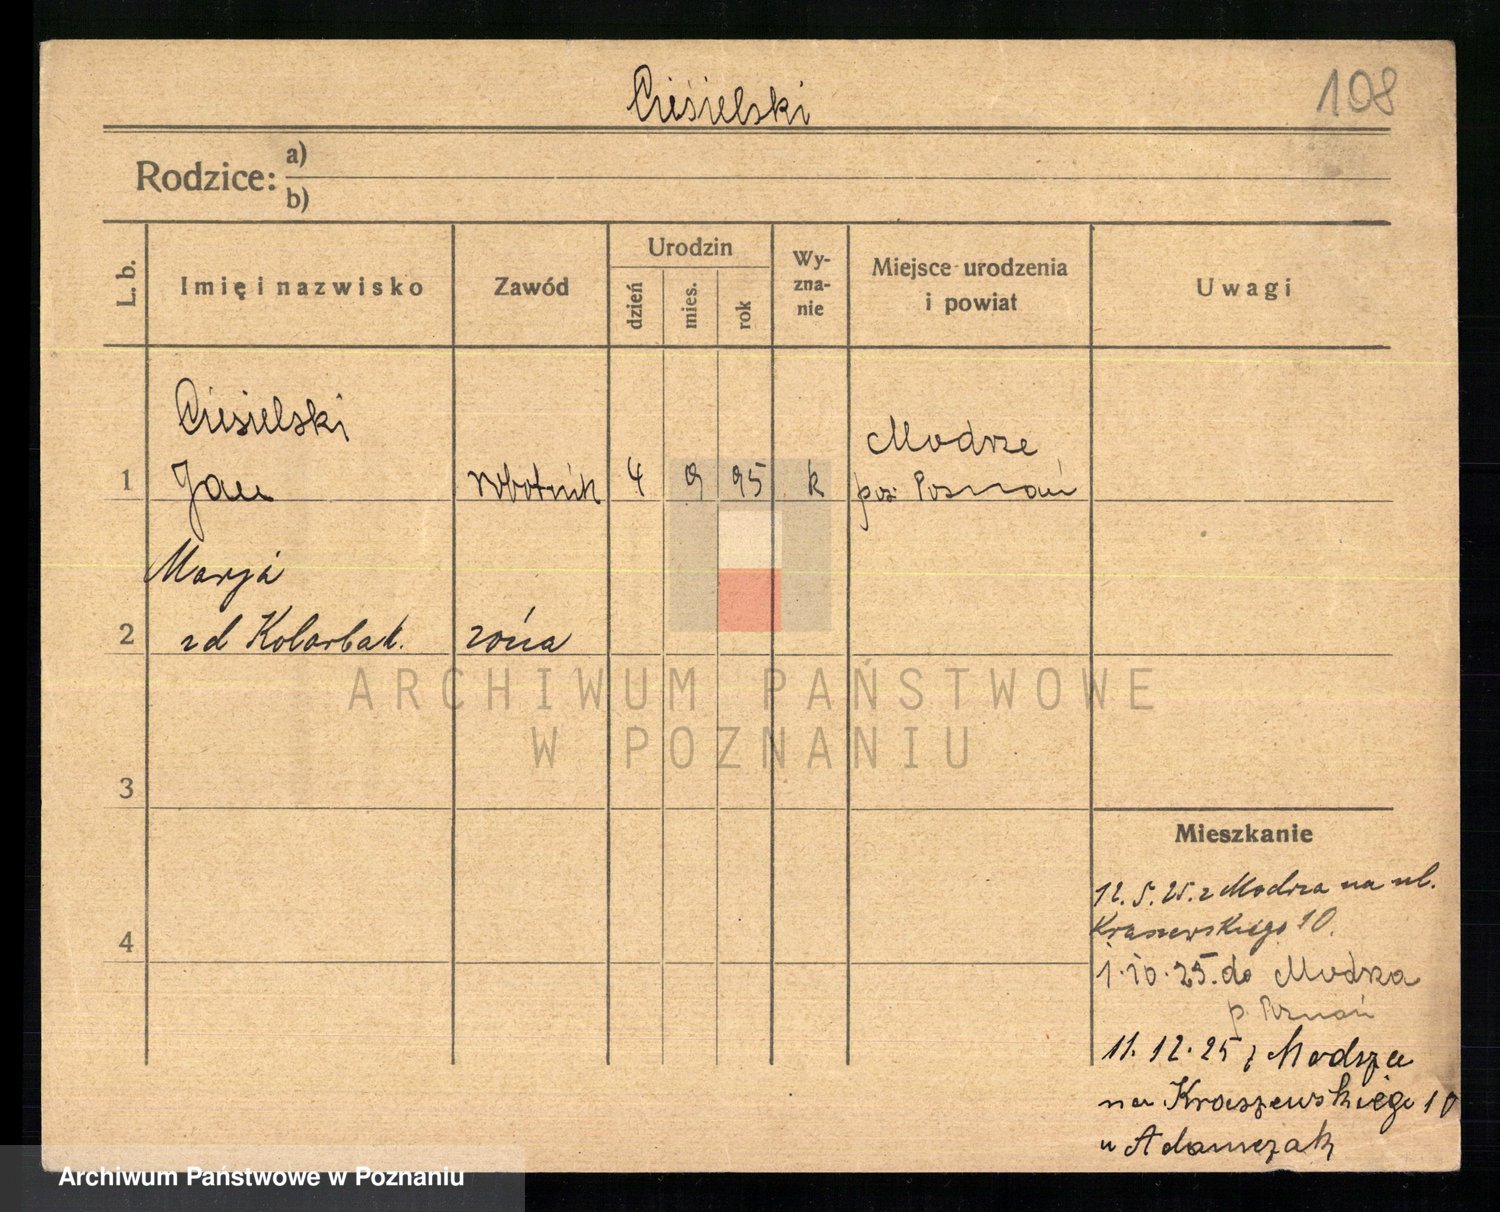 Ciesielski
108
Rodzice: a)
b)
L. b.
Imię i nazwisko
Zawód
Urodzin
dzień
mies.
rok
Wy-
zna-
nie
Miejsce urodzenia
i powiat
Uwagi
Ciesielski
1 Jan robotnik 4 9 95 k
Modrze
poz. Poznań
Marja
2 zd Kolarbak. żona
3
4
Mieszkanie
12. 5. 25. z Modrza na ul.
Kraszewskiego 10.
1. 10. 25. do Modrza
p. Poznań
11. 12. 25 z Modrza
na Kraszewskiego 10
u Adamczak
ARCHIWUM PAŃSTWOWE
W POZNANIU
Archiwum Państwowe w Poznaniu